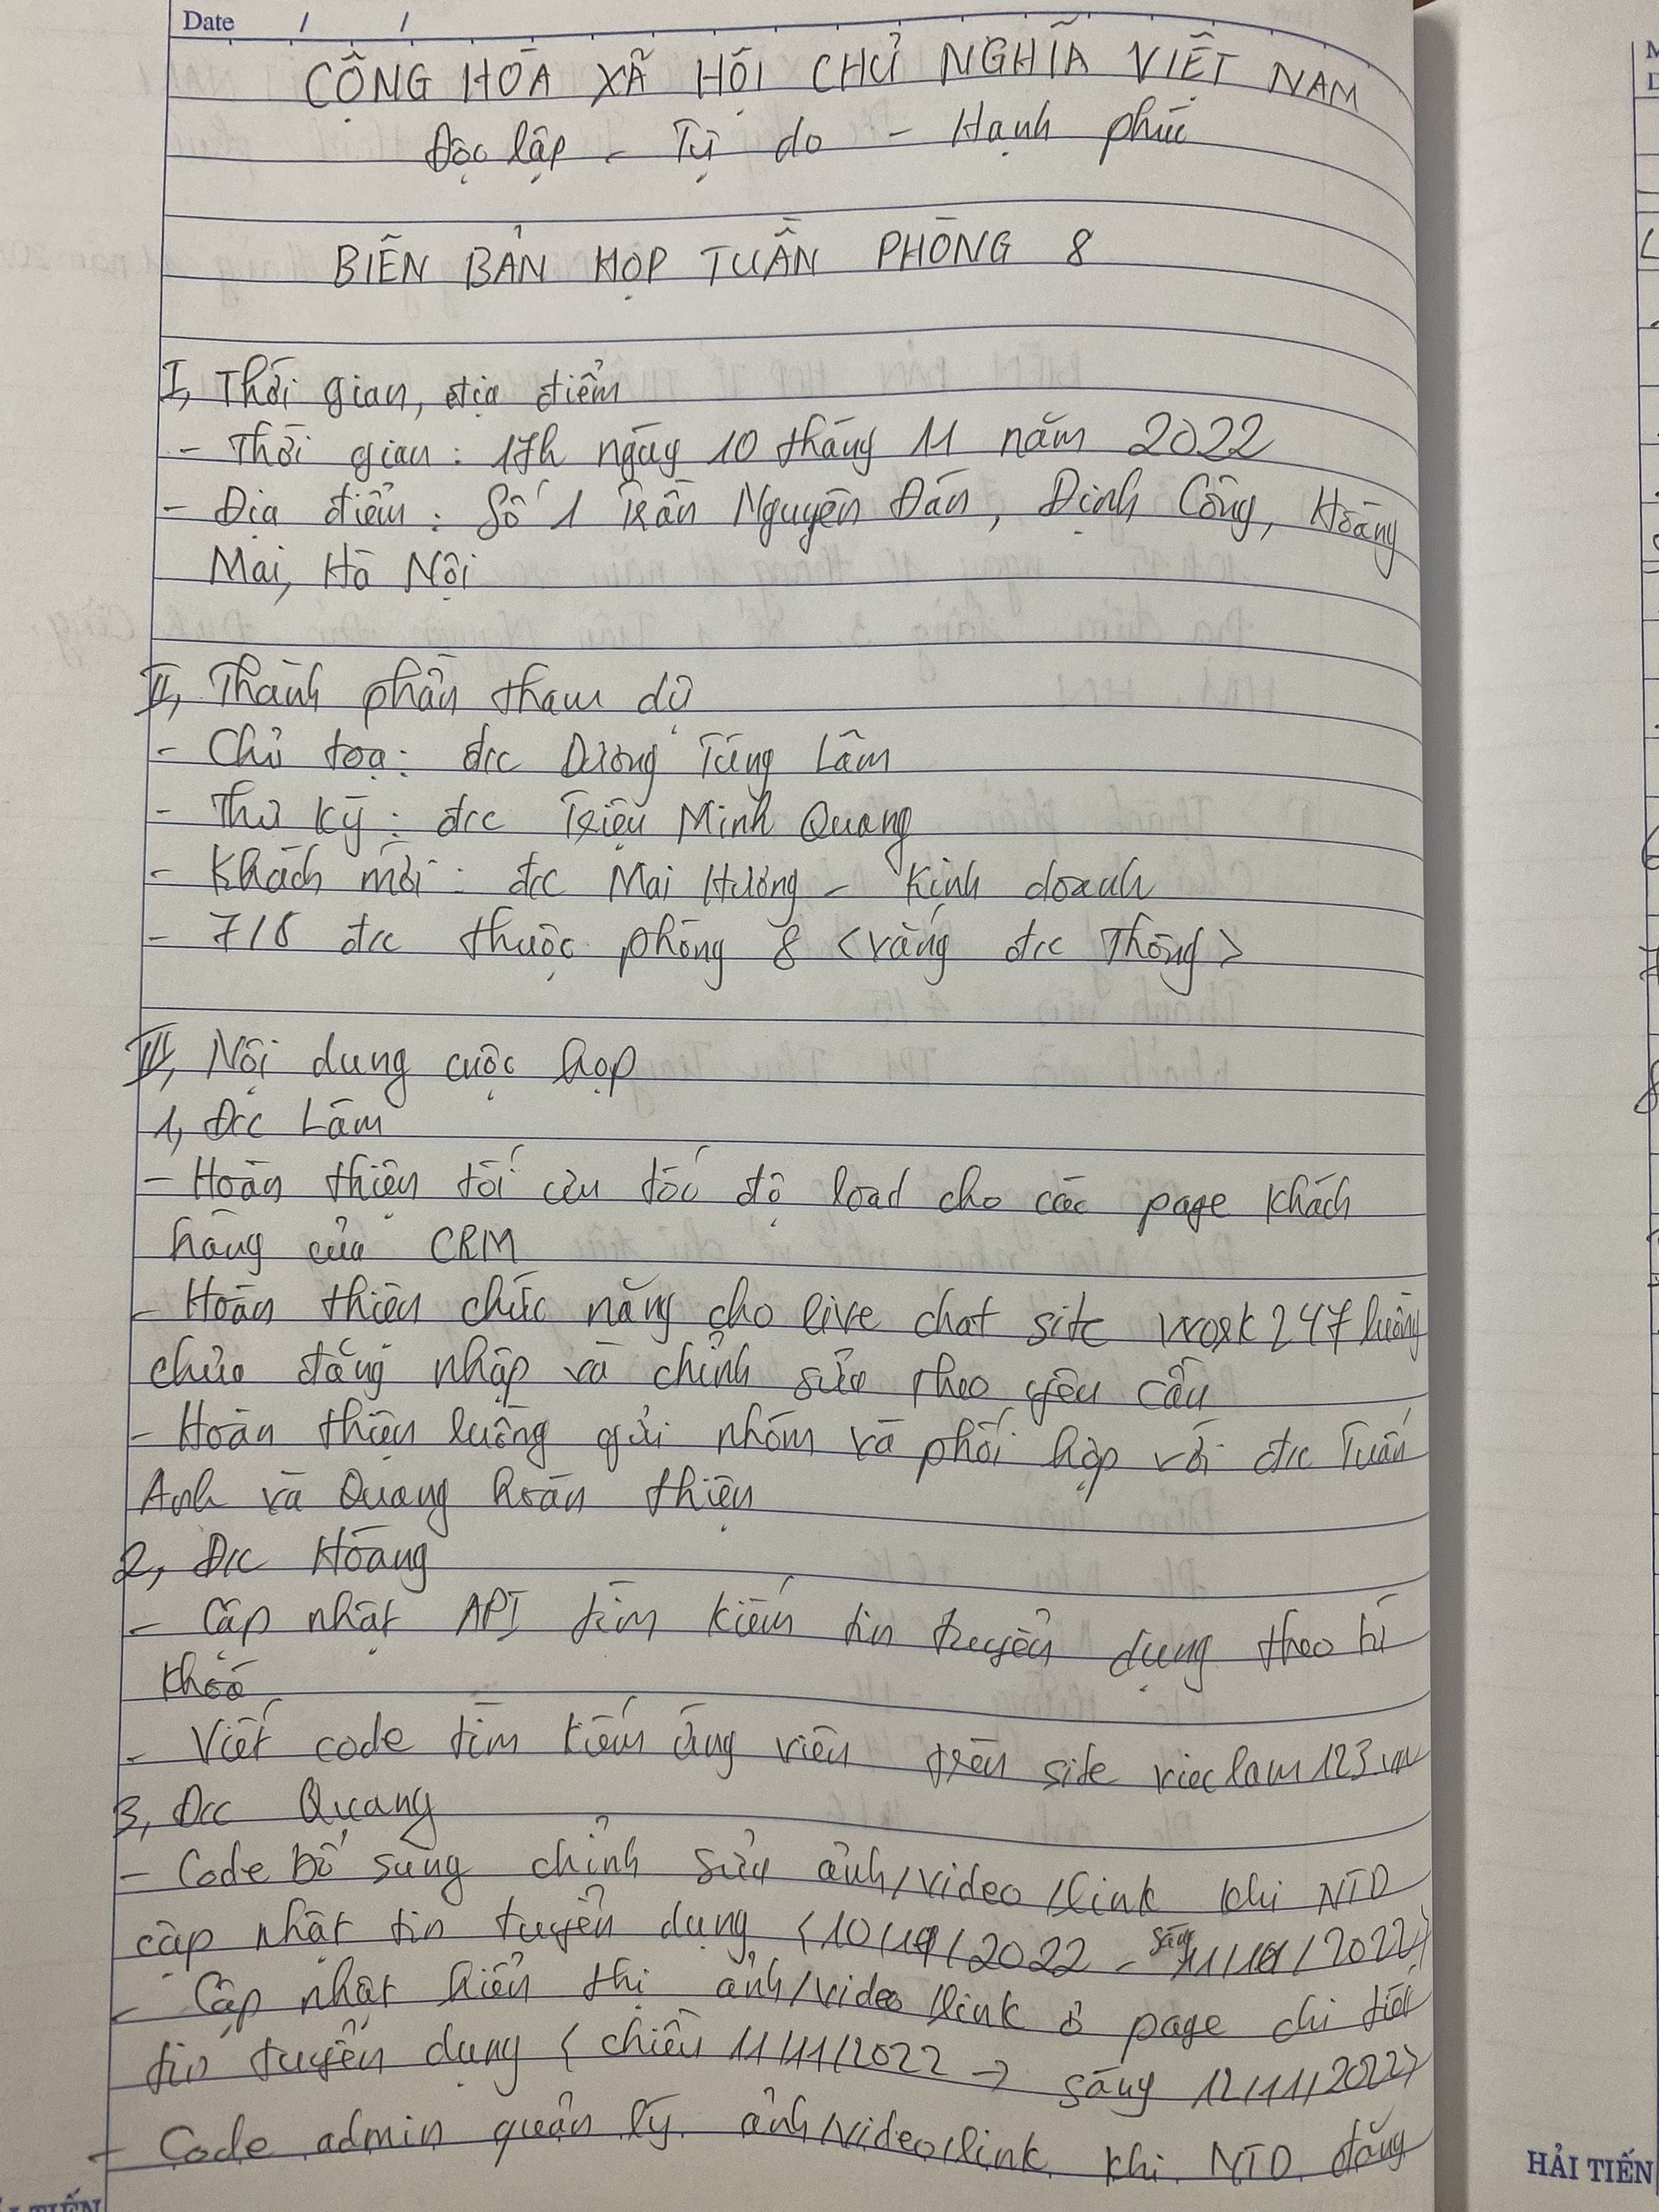 Date / /
CỘNG HÒA XÃ HỘI CHỦ NGHĨA VIỆT NAM
Độc lập - Tự do - Hạnh phúc
BIÊN BẢN HỌP TUẦN PHÒNG 8
I, Thời gian, địa điểm
- Thời gian : 17h ngày 10 tháng 11 năm 2022
- Địa điểm : Số 1 Trần Nguyên Đán, Định Công, Hoàng
Mai, Hà Nội
II, Thành phần tham dự
- Chủ toạ : đ/c Dương Tùng Lâm
- Thư ký : đ/c Triệu Minh Quang
- Khách mời : đ/c Mai Hương - Kinh doanh
- 7/8 đ/c thuộc phòng 8 <vắng đ/c Thông>
III, Nội dung cuộc họp
1, Đ/c Lâm
- Hoàn thiện tối ưu tốc độ load cho các page khách
hàng của CRM
- Hoàn thiện chức năng cho live chat site work247 luồng
chưa đăng nhập và chỉnh sửa theo yêu cầu
- Hoàn thiện luồng gửi nhóm và phối hợp với đ/c Tuấn
Anh và Quang hoàn thiện
2, Đ/c Hoàng
- Cập nhật API tìm kiếm tin tuyển dụng theo từ
khoá
- Viết code tìm kiếm ứng viên trên site vieclam123.vn
3, Đ/c Quang
- Code bổ sung chỉnh sửa ảnh/video/link khi NTD
cập nhật tin tuyển dụng (10/11/2022 - sáng 11/11/2022)
- Cập nhật hiển thị ảnh/video/link ở page chi tiết
tin tuyển dụng (chiều 11/11/2022 → sáng 12/11/2022)
- Code admin quản lý ảnh/video/link khi NTD đăng
HẢI TIẾN